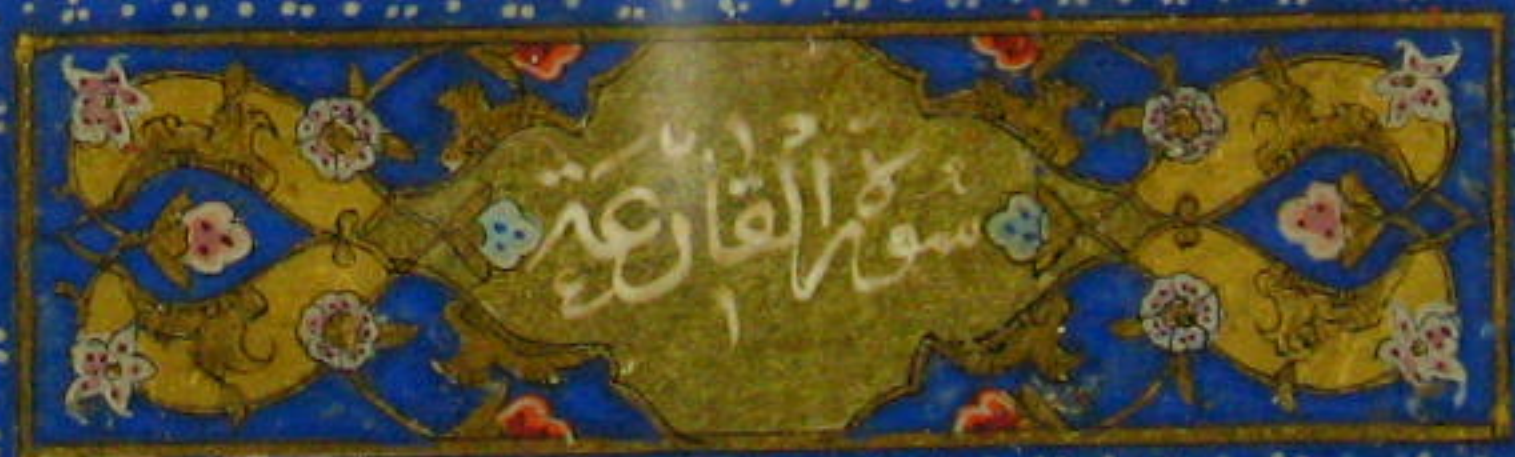 سورة القارعة